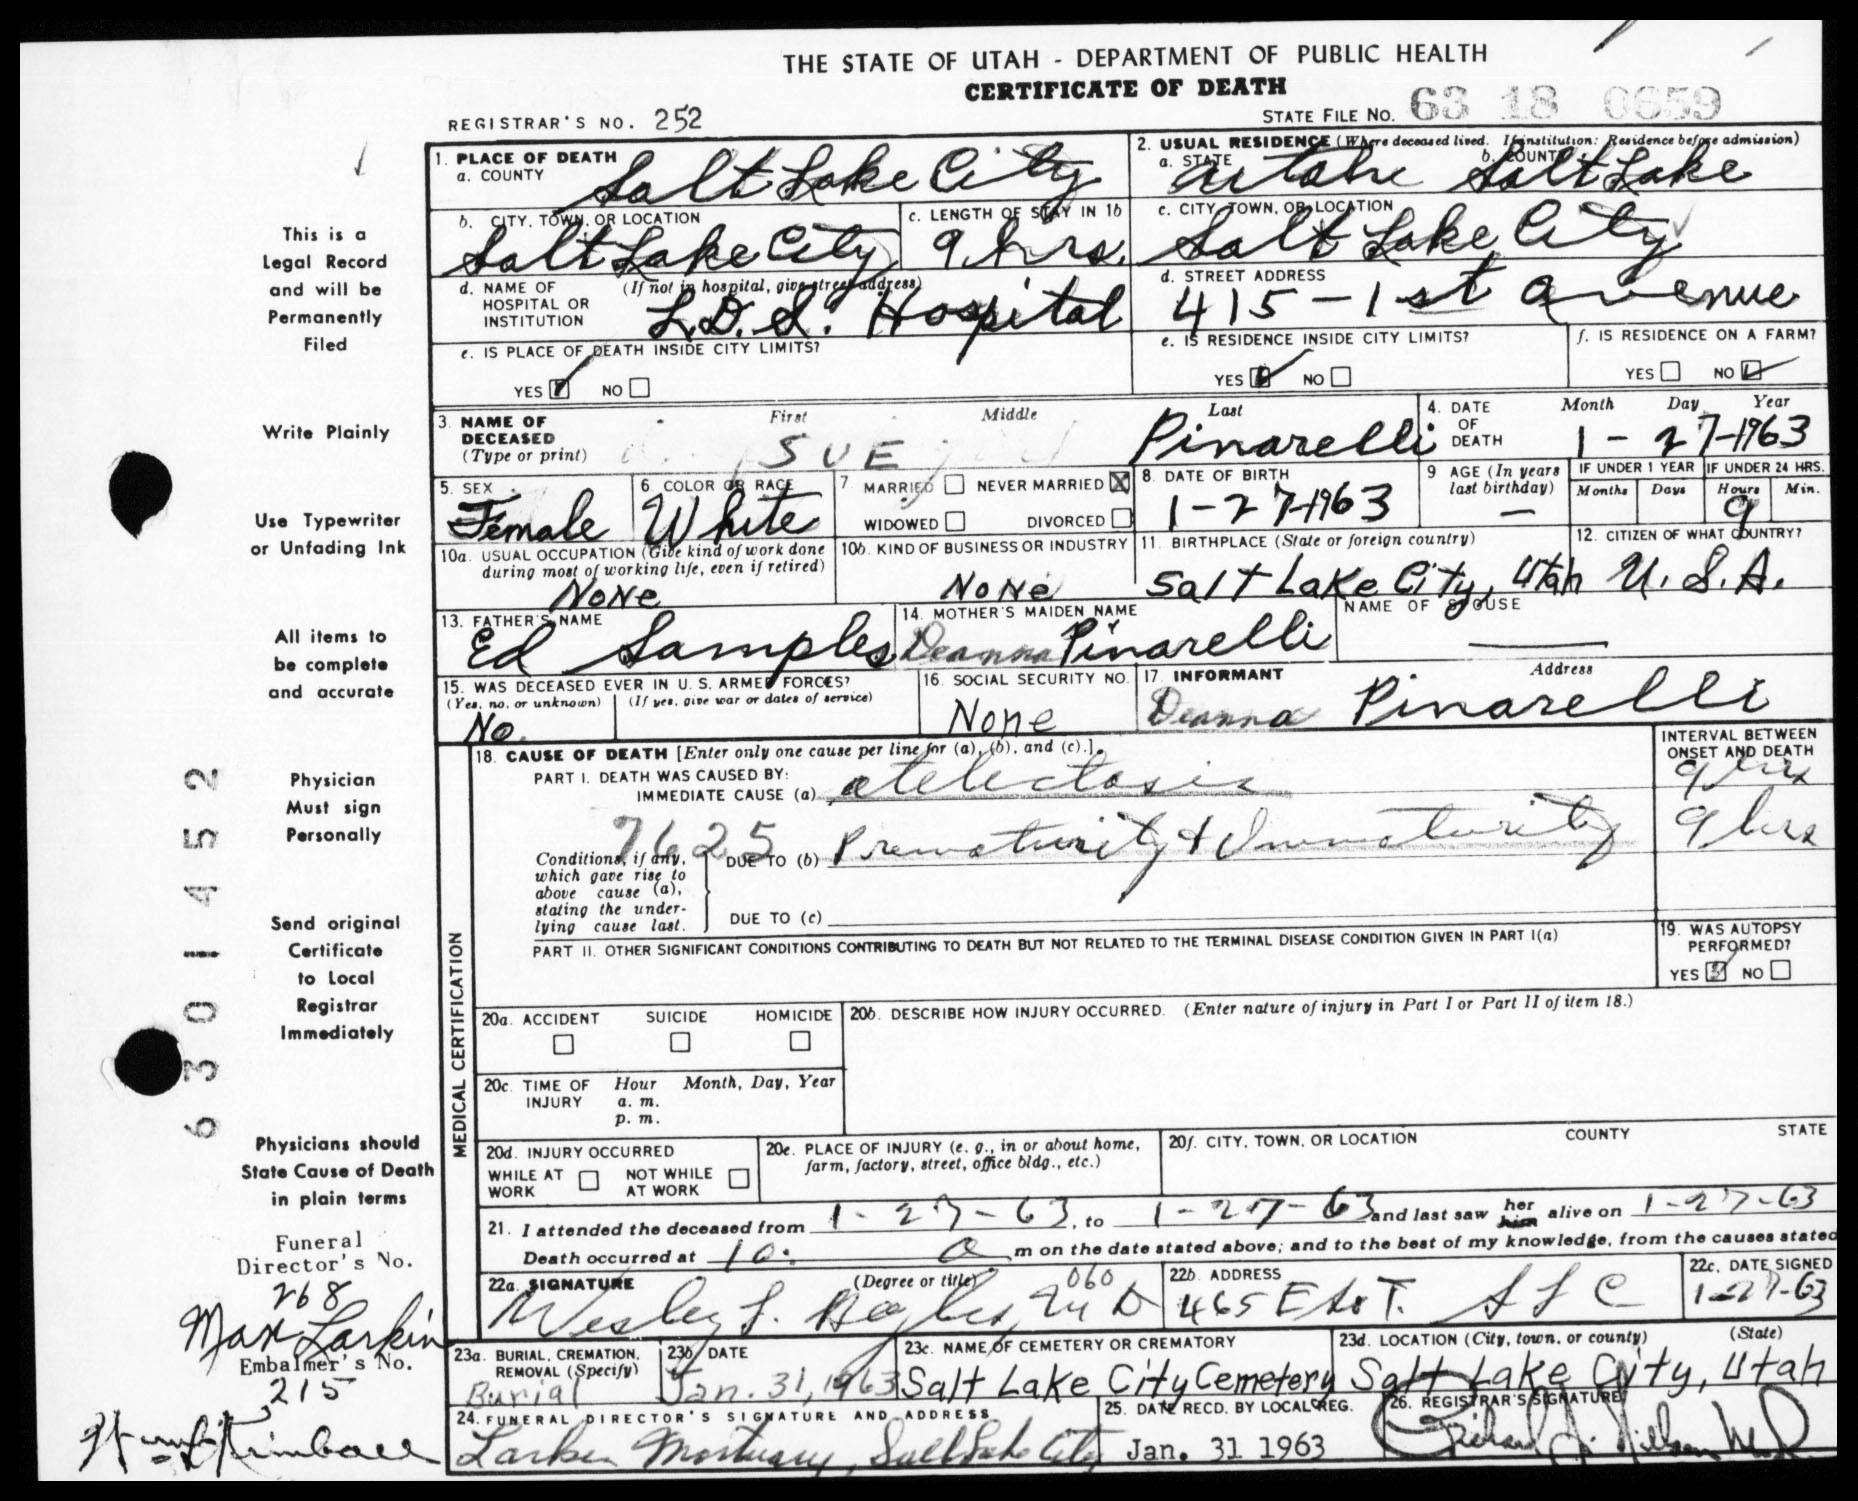 THE STATE OF UTAH - DEPARTMENT OF PUBLIC HEALTH
CERTIFICATE OF DEATH
REGISTRAR'S NO. 252
STATE FILE NO. 63 18 0659
1. PLACE OF DEATH
a. COUNTY Salt Lake City
2. USUAL RESIDENCE (Where deceased lived. If institution: Residence before admission)
a. STATE Utah b. COUNTY Salt Lake
b. CITY, TOWN, OR LOCATION Salt Lake City
c. LENGTH OF STAY IN 1b 9 hrs.
c. CITY, TOWN, OR LOCATION Salt Lake City
d. NAME OF HOSPITAL OR INSTITUTION (If not in hospital, give street address) L.D.S. Hospital
d. STREET ADDRESS 415 - 1st Avenue
e. IS PLACE OF DEATH INSIDE CITY LIMITS?
YES NO
e. IS RESIDENCE INSIDE CITY LIMITS?
YES NO
f. IS RESIDENCE ON A FARM?
YES NO
3. NAME OF DECEASED (Type or print) First Middle Last
SUE Pinarelli
4. DATE OF DEATH Month Day Year
1-27-1963
5. SEX Female
6. COLOR OR RACE White
7. MARRIED NEVER MARRIED X
WIDOWED DIVORCED
8. DATE OF BIRTH 1-27-1963
9 AGE (In years last birthday) —
IF UNDER 1 YEAR Months Days
IF UNDER 24 HRS. Hours Min.
9
10a. USUAL OCCUPATION (Give kind of work done during most of working life, even if retired)
NoNe
10b. KIND OF BUSINESS OR INDUSTRY
NoNe
11. BIRTHPLACE (State or foreign country)
Salt Lake City, Utah
12. CITIZEN OF WHAT COUNTRY?
U.S.A.
13. FATHER'S NAME Ed Samples
14. MOTHER'S MAIDEN NAME Deanna Pinarelli
NAME OF SPOUSE
15. WAS DECEASED EVER IN U. S. ARMED FORCES?
(Yes, no, or unknown) (If yes, give war or dates of service)
No
16. SOCIAL SECURITY NO. None
17. INFORMANT Address
Deanna Pinarelli
MEDICAL CERTIFICATION
18. CAUSE OF DEATH [Enter only one cause per line for (a), (b), and (c).]
INTERVAL BETWEEN ONSET AND DEATH
PART I. DEATH WAS CAUSED BY:
IMMEDIATE CAUSE (a) atelectasis 9 hrs
7625
Conditions, if any, which gave rise to above cause (a), stating the underlying cause last.
DUE TO (b) Prematurity & Immaturity 9 hrs
DUE TO (c)
PART II. OTHER SIGNIFICANT CONDITIONS CONTRIBUTING TO DEATH BUT NOT RELATED TO THE TERMINAL DISEASE CONDITION GIVEN IN PART I(a)
19. WAS AUTOPSY PERFORMED?
YES NO
20a. ACCIDENT SUICIDE HOMICIDE
20b. DESCRIBE HOW INJURY OCCURRED. (Enter nature of injury in Part I or Part II of item 18.)
20c. TIME OF INJURY Hour Month, Day, Year
a. m.
p. m.
20d. INJURY OCCURRED
WHILE AT WORK NOT WHILE AT WORK
20e. PLACE OF INJURY (e. g., in or about home, farm, factory, street, office bldg., etc.)
20f. CITY, TOWN, OR LOCATION COUNTY STATE
21. I attended the deceased from 1-27-63, to 1-27-63 and last saw her him alive on 1-27-63
Death occurred at 10: a m on the date stated above; and to the best of my knowledge, from the causes stated
22a. SIGNATURE (Degree or title) 060
Wesley M D
22b. ADDRESS 465 E SLC
22c. DATE SIGNED 1-27-63
23a. BURIAL, CREMATION, REMOVAL (Specify) Burial
23b. DATE Jan. 31, 1963
23c. NAME OF CEMETERY OR CREMATORY
Salt Lake City Cemetery
23d. LOCATION (City, town, or county) (State)
Salt Lake City, Utah
24. FUNERAL DIRECTOR'S SIGNATURE AND ADDRESS
Larkin Mortuary, Salt Lake City
25. DATE RECD. BY LOCAL REG.
Jan. 31 1963
26. REGISTRAR'S SIGNATURE
This is a
Legal Record
and will be
Permanently
Filed
Write Plainly
Use Typewriter
or Unfading Ink
All items to
be complete
and accurate
Physician
Must sign
Personally
Send original
Certificate
to Local
Registrar
Immediately
Physicians should
State Cause of Death
in plain terms
Funeral
Director's No.
268
Max Larkin
Embalmer's No.
215
Kimball
6301452